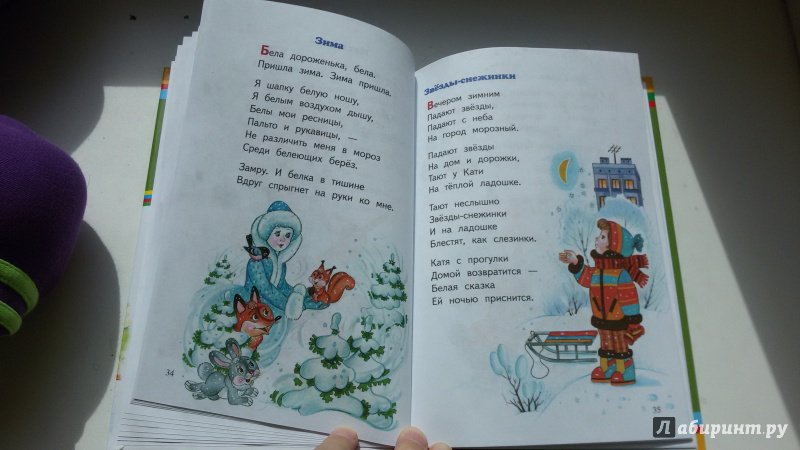 Зима
Бела дороженька, бела.
Пришла зима. Зима пришла.
Я шапку белую ношу,
Я белым воздухом дышу,
Белы мои ресницы,
Пальто и рукавицы, —
Не различить меня в мороз
Среди белеющих берёз.
Замру. И белка в тишине
Вдруг спрыгнет на руки ко мне.
34
Звёзды-снежинки
Вечером зимним
Падают звёзды,
Падают с неба
На город морозный.
Падают звёзды
На дом и дорожки,
Тают у Кати
На тёплой ладошке.
Тают неслышно
Звёзды-снежинки
И на ладошке
Блестят, как слезинки.
Катя с прогулки
Домой возвратится —
Белая сказка
Ей ночью приснится.
35
Лабиринт.ру